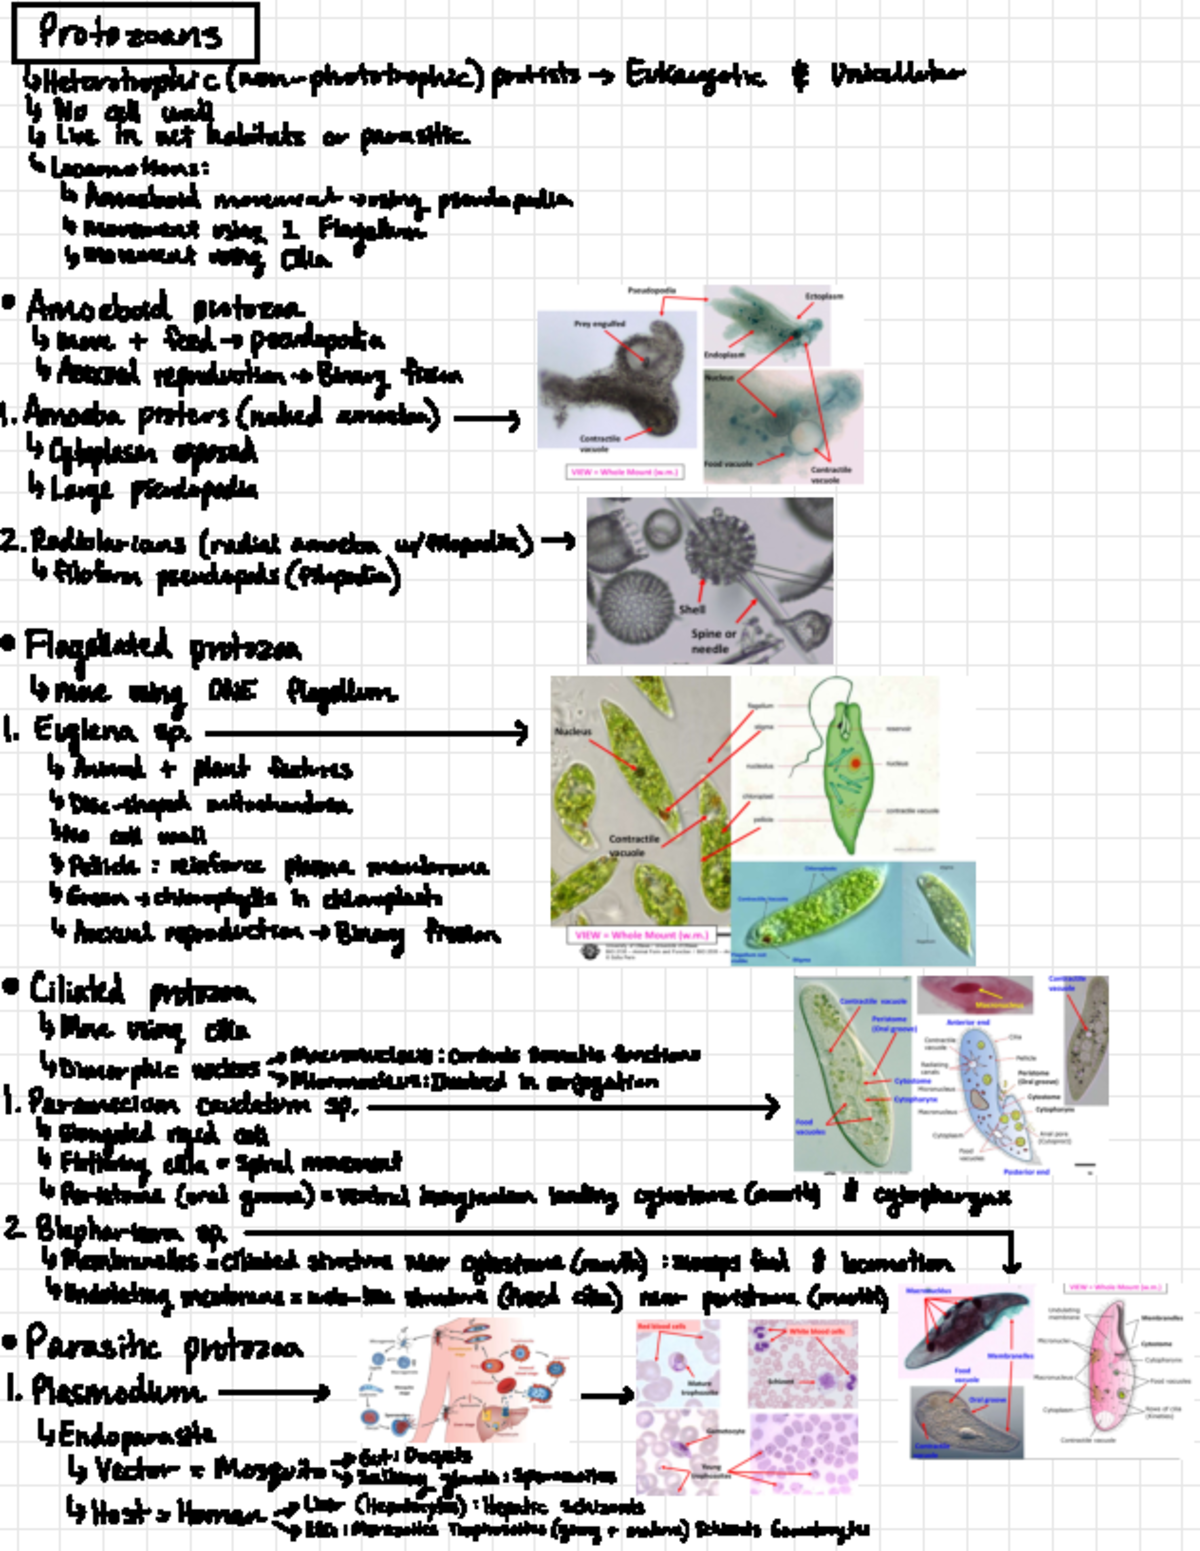 Protozoans
↳ Heterotrophic (non-phototrophic) protists → Eukaryotic & Unicellular
↳ No cell wall
↳ Live in wet habitats or parasitic.
↳ Locomotions:
↳ Amoeboid movement → using pseudopodia
↳ movement using 1 Flagellum
↳ movement using Cilia
• Amoeboid protozoa
↳ Move + feed → pseudopodia
↳ Asexual reproduction → Binary fission
1. Amoeba proteus (naked amoeba) →
↳ Cytoplasm exposed
↳ Large pseudopodia
Pseudopodia
Ectoplasm
Prey engulfed
Endoplasm
Nucleus
Contractile vacuole
Food vacuole
Contractile vacuole
VIEW = Whole Mount (w.m.)
2. Radiolarians (radial amoeba w/ filopodia) →
↳ filoform pseudopods (filopodia)
Shell
Spine or needle
• Flagellated protozoa
↳ move using ONE flagellum
1. Euglena sp. →
↳ Animal + plant features
↳ Disc-shaped mitochondria
↳ No cell wall
↳ Pellicle : reinforce plasma membrane
↳ Green → chlorophylls in chloroplasts
↳ Asexual reproduction → Binary fission
Nucleus
Contractile vacuole
flagellum
stigma
nucleolus
chloroplast
pellicle
reservoir
nucleus
contractile vacuole
Chloroplasts
Contractile vacuole
Stigma
VIEW = Whole Mount (w.m.)
• Ciliated protozoa
↳ Move using cilia
↳ Dimorphic nucleus → Macronucleus : Controls somatic functions
→ Micronucleus : Involved in conjugation
1. Paramecium caudatum sp. →
↳ Elongated rigid cell
↳ Fluttering cilia = Spiral movement
↳ Peristome (oral groove) = ventral invagination leading cytostome (mouth) & cytopharynx
Contractile vacuole
Peristome (Oral groove)
Cytostome
Cytopharynx
Food vacuoles
Macronucleus
Contractile vacuole
Anterior end
Contractile vacuole
Radiating canals
Micronucleus
Macronucleus
Cytoplasm
Food vacuoles
Cilia
Pellicle
Peristome (Oral groove)
Cytostome
Cytopharynx
Anal pore (Cytoproct)
Posterior end
2. Blepharisma sp.
↳ Membranelles = ciliated structure near cytostome (mouth) : sweeps food & locomotion
↳ Undulating membrane = sail-like structure (fused cilia) near peristome (mouth)
Macronucleus
Membranelles
Food vacuole
Oral groove
Contractile vacuole
VIEW = Whole Mount (w.m.)
Undulating membrane
Micronuclei
Macronucleus
Cytoplasm
Contractile vacuole
Membranelles
Cytostome
Cytopharynx
Food vacuoles
Rows of cilia (Kineties)
• Parasitic protozoa
1. Plasmodium →
↳ Endoparasite
↳ Vector = Mosquito → Gut : Oocysts
→ Salivary glands : Sporozoites
↳ Host = Human → Liver (Hepatocytes) : Hepatic schizonts
→ RBCs : Merozoites Trophozoites (young + mature) Schizonts Gametocytes
Red blood cells
Mature trophozoite
White blood cells
Schizont
Gametocyte
Young trophozoites